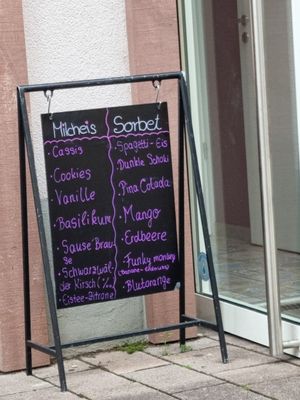 Milcheis
• Cassis
• Cookies
• Vanille
• Basilikum
• Sause Brau-
se
• Schwarzwäl
der Kirsch
• Eistee-Zitrone
Sorbet
• Spagetti-Eis
• Dunkle Schoki
• Pina Colada
• Mango
• Erdbeere
• Funky monkey
• Blutorange